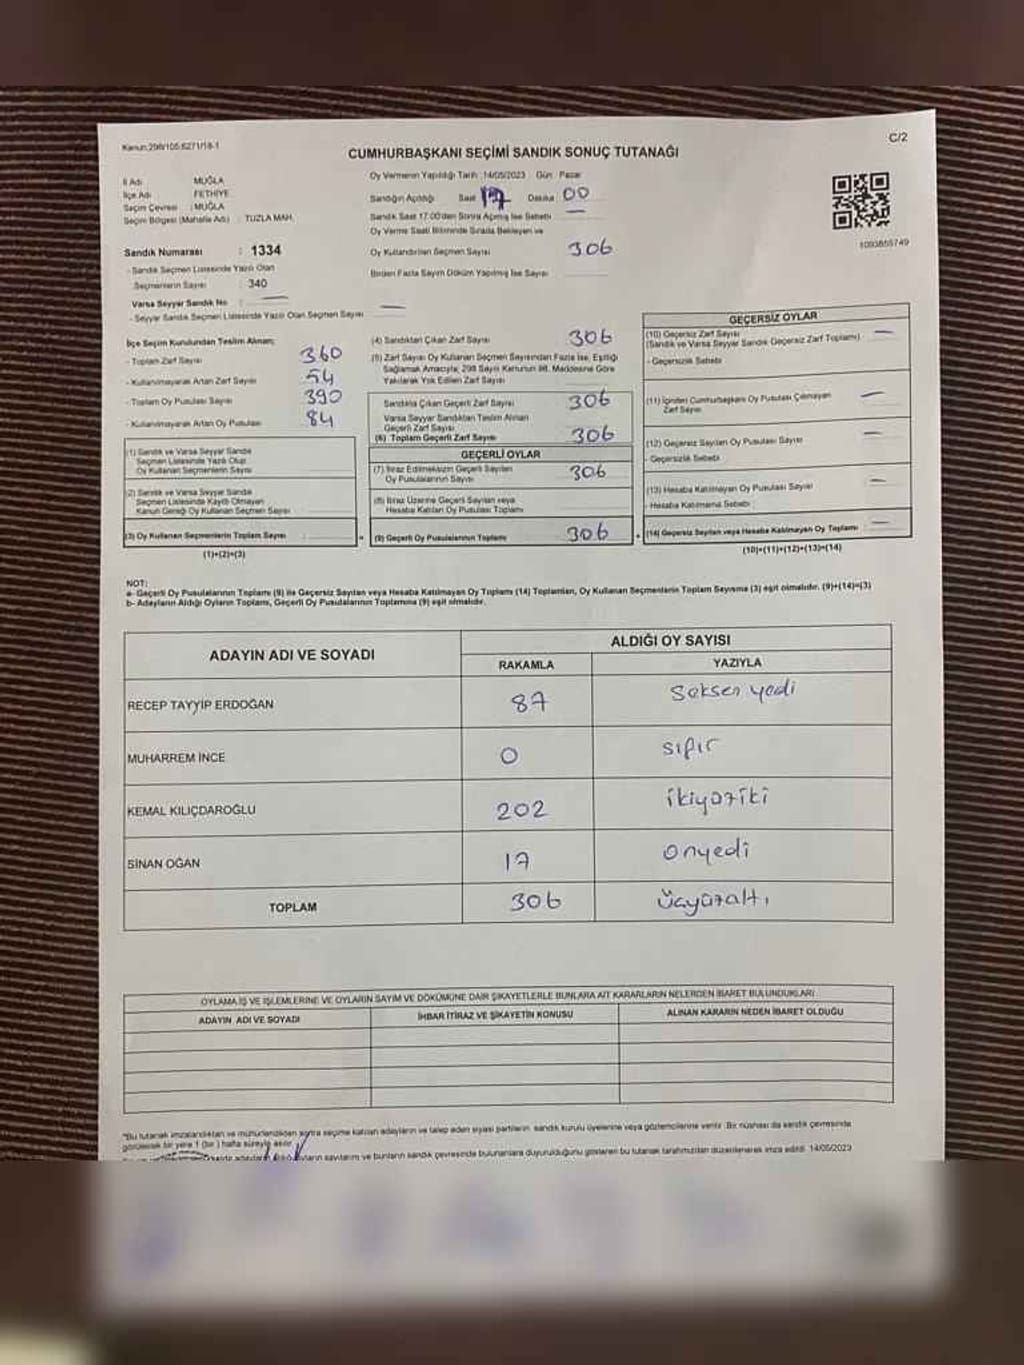 Kanun:298/105;6271/18-1
C/2
CUMHURBAŞKANI SEÇİMİ SANDIK SONUÇ TUTANAĞI
İl Adı : MUĞLA
İlçe Adı : FETHİYE
Seçim Çevresi : MUĞLA
Seçim Bölgesi (Mahalle Adı) : TUZLA MAH.
Sandık Numarası : 1334
- Sandık Seçmen Listesinde Yazılı Olan
Seçmenlerin Sayısı : 340
Varsa Seyyar Sandık No : —
- Seyyar Sandık Seçmen Listesinde Yazılı Olan Seçmen Sayısı —
Oy Vermenin Yapıldığı Tarih :14/05/2023 Gün : Pazar
Sandığın Açıldığı Saat 17 Dakika 00
Sandık Saat 17:00'den Sonra Açılmış İse Sebebi —
Oy Verme Saati Bitiminde Sırada Bekleyen ve
Oy Kullandırılan Seçmen Sayısı 306
Birden Fazla Sayım Döküm Yapılmış İse Sayısı
1093855749
İlçe Seçim Kurulundan Teslim Alınan;
- Toplam Zarf Sayısı 360
- Kullanılmayarak Artan Zarf Sayısı 54
- Toplam Oy Pusulası Sayısı 390
- Kullanılmayarak Artan Oy Pusulası 84
(1) Sandık ve Varsa Seyyar Sandık
Seçmen Listesinde Yazılı Olup
Oy Kullanan Seçmenlerin Sayısı
(2) Sandık ve Varsa Seyyar Sandık
Seçmen Listesinde Kayıtlı Olmayan
Kanun Gereği Oy Kullanan Seçmen Sayısı
(3) Oy Kullanan Seçmenlerin Toplam Sayısı
(1)+(2)=(3)
(4) Sandıktan Çıkan Zarf Sayısı 306
(5) Zarf Sayısı Oy Kullanan Seçmen Sayısından Fazla İse, Eşitliği
Sağlamak Amacıyla, 298 Sayılı Kanunun 98. Maddesine Göre
Yakılarak Yok Edilen Zarf Sayısı
Sandıkta Çıkan Geçerli Zarf Sayısı 306
Varsa Seyyar Sandıktan Teslim Alınan
Geçerli Zarf Sayısı
(6) Toplam Geçerli Zarf Sayısı 306
GEÇERLİ OYLAR
(7) İtiraz Edilmeksizin Geçerli Sayılan
Oy Pusulalarının Sayısı 306
(8) İtiraz Üzerine Geçerli Sayılan veya
Hesaba Katılan Oy Pusulası Toplamı
(9) Geçerli Oy Pusulalarının Toplamı 306
GEÇERSİZ OYLAR
(10) Geçersiz Zarf Sayısı
(Sandık ve Varsa Seyyar Sandık Geçersiz Zarf Toplamı) —
- Geçersizlik Sebebi
(11) İçinden Cumhurbaşkanı Oy Pusulası Çıkmayan
Zarf Sayısı —
(12) Geçersiz Sayılan Oy Pusulası Sayısı —
- Geçersizlik Sebebi
(13) Hesaba Katılmayan Oy Pusulası Sayısı —
- Hesaba Katılmama Sebebi
(14) Geçersiz Sayılan veya Hesaba Katılmayan Oy Toplamı —
(10)+(11)+(12)+(13)=(14)
NOT:
a- Geçerli Oy Pusulalarının Toplamı (9) ile Geçersiz Sayılan veya Hesaba Katılmayan Oy Toplamı (14) Toplamları, Oy Kullanan Seçmenlerin Toplam Sayısına (3) eşit olmalıdır. (9)+(14)=(3)
b- Adayların Aldığı Oyların Toplamı, Geçerli Oy Pusulalarının Toplamına (9) eşit olmalıdır.
ADAYIN ADI VE SOYADI ALDIĞI OY SAYISI
RAKAMLA YAZIYLA
RECEP TAYYİP ERDOĞAN 87 Seksen yedi
MUHARREM İNCE 0 sıfır
KEMAL KILIÇDAROĞLU 202 ikiyüziki
SİNAN OĞAN 17 onyedi
TOPLAM 306 üçyüzaltı
OYLAMA İŞ VE İŞLEMLERİNE VE OYLARIN SAYIM VE DÖKÜMÜNE DAİR ŞİKAYETLERLE BUNLARA AİT KARARLARIN NELERDEN İBARET BULUNDUKLARI
ADAYIN ADI VE SOYADI İHBAR İTİRAZ VE ŞİKAYETİN KONUSU ALINAN KARARIN NEDEN İBARET OLDUĞU
*Bu tutanak imzalandıktan ve mühürlendikten sonra seçime katılan adayların ve talep eden siyasi partilerin sandık kurulu üyelerine veya gözlemcilerine verilir. Bir nüshası da sandık çevresinde
görülebilecek bir yere 1 (bir) hafta süreyle asılır.
sayıların sayılarını ve bunların sandık çevresinde bulunanlara duyurulduğunu gösteren bu tutanak tarafımızdan düzenlenerek imza edildi. 14/05/2023